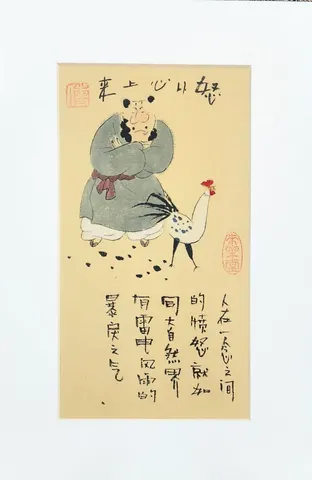 怒从心上来
人在一念之间
的愤怒就如
同大自然界
有雷电风雨的
暴戾之气